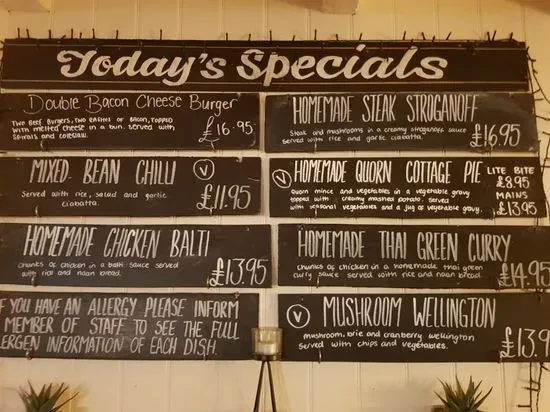 Today's Specials
Double Bacon Cheese Burger
Two Beef Burgers, two rashers of bacon, topped
with melted cheese in a bun. served with
spirals and coleslaw.
£16.95
Homemade Steak Stroganoff
Steak and mushrooms in a creamy stroganoff sauce
served with rice and garlic ciabatta.
£16.95
Mixed Bean Chilli V
Served with rice, salad and garlic
ciabatta.
£11.95
V Homemade Quorn Cottage Pie
Quorn mince and vegetables in a vegetable gravy
topped with creamy mashed potato. served
with seasonal vegetables and a jug of vegetable gravy.
Lite Bite
£8.95
Mains
£13.95
Homemade Chicken Balti
Chunks of chicken in a balti sauce served
with rice and naan bread.
£13.95
Homemade Thai Green Curry
chunks of chicken in a homemade thai green
curry sauce served with rice and naan bread.
£14.95
If you have an allergy please inform
member of staff to see the full
ergen information of each dish.
V Mushroom Wellington
mushroom, brie and cranberry wellington
served with chips and vegetables.
£13.9